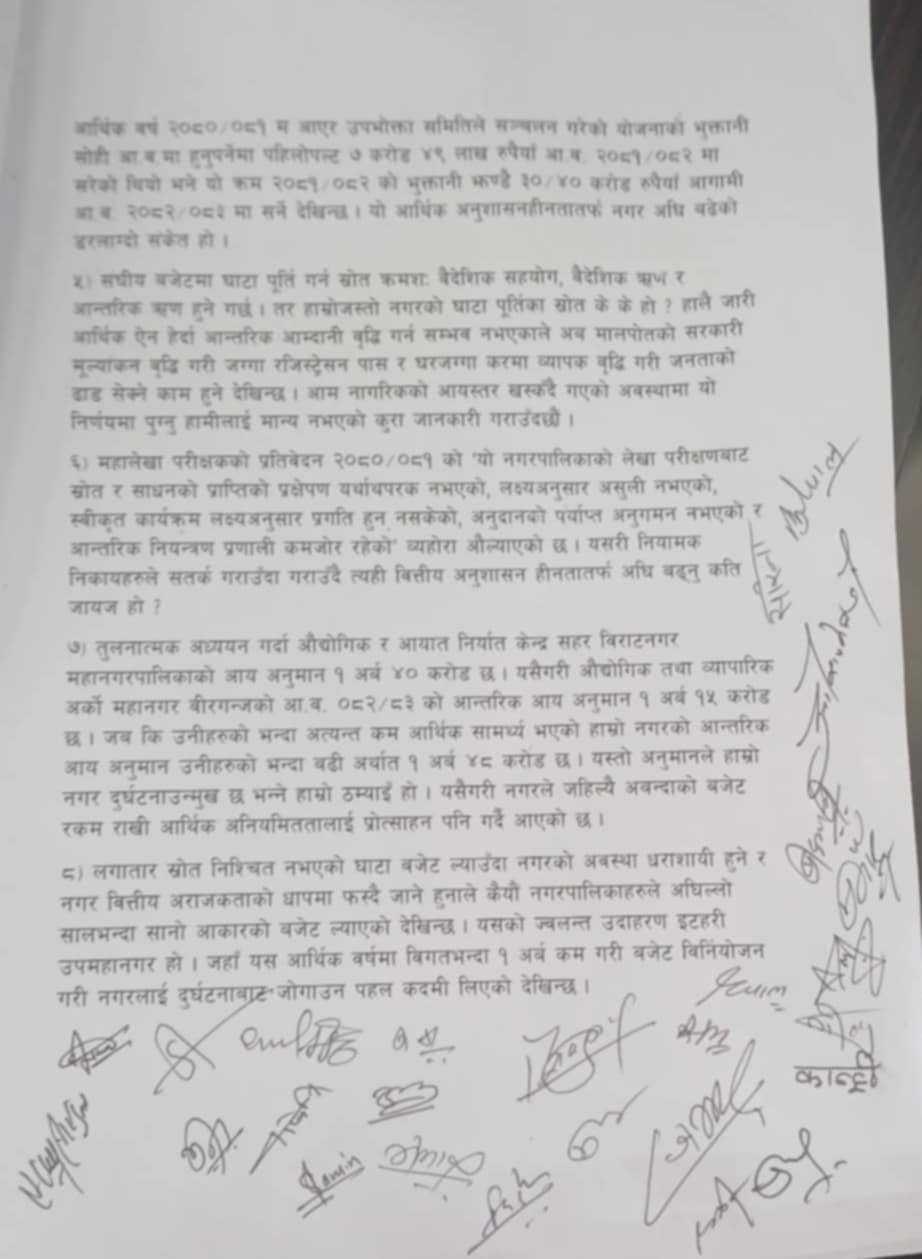 आर्थिक वर्ष २०८०/०८१ म आएर उपभोक्ता समितिले सञ्चलन गरेको योजनाको भुक्तानी
सोही आ.ब.मा हुनुपर्नेमा पहिलोपल्ट ७ करोड ४९ लाख रुपैयाँ आ.व. २०८१/०८२ मा
सरेको थियो भने यो क्रम २०८१/०८२ को भुक्तानी झण्डै ३०/४० करोड रुपैयाँ आगामी
आ.ब. २०८२/०८३ मा सर्ने देखिन्छ । यो आर्थिक अनुशासनहीनतातर्फ नगर अघि बढेको
डरलाग्दो संकेत हो ।
५) संघीय बजेटमा घाटा पूर्ति गर्न स्रोत क्रमशः बैदेशिक सहयोग, बैदेशिक ऋण र
आन्तरिक ऋण हुने गर्छ । तर हाम्रोजस्तो नगरको घाटा पूर्तिका स्रोत के के हो ? हालै जारी
आर्थिक ऐन हेर्दा आन्तरिक आम्दानी बृद्धि गर्न सम्भव नभएकाले अब मालपोतको सरकारी
मूल्यांकन बृद्धि गरी जग्गा रजिस्ट्रेसन पास र घरजग्गा करमा व्यापक बृद्धि गरी जनताको
ढाड सेक्ने काम हुने देखिन्छ । आम नागरिकको आयस्तर खस्कदै गएको अवस्थामा यो
निर्णयमा पुग्नु हामीलाई मान्य नभएको कुरा जानकारी गराउँदछौ ।
६) महालेखा परीक्षकको प्रतिबेदन २०८०/०८१ को 'यो नगरपालिकाको लेखा परीक्षणबाट
स्रोत र साधनको प्राप्तिको प्रक्षेपण यर्थाथपरक नभएको, लक्ष्यअनुसार असुली नभएको,
स्वीकृत कार्यक्रम लक्ष्यअनुसार प्रगति हुन नसकेको, अनुदानको पर्याप्त अनुगमन नभएको र
आन्तरिक नियन्त्रण प्रणाली कमजोर रहेको' व्यहोरा औल्याएको छ । यसरी नियामक
निकायहरुले सतर्क गराउँदा गराउँदै त्यही बित्तीय अनुशासन हीनतातर्फ अघि बढ्नु कति
जायज हो ?
७) तुलनात्मक अध्ययन गर्दा औद्योगिक र आयात निर्यात केन्द्र सहर बिराटनगर
महानगरपालिकाको आय अनुमान १ अर्ब ४० करोड छ । यसैगरी औद्योगिक तथा व्यापारिक
अर्को महानगर बीरगन्जको आ.ब. ०८२/८३ को आन्तरिक आय अनुमान १ अर्ब १५ करोड
छ । जब कि उनीहरुको भन्दा अत्यन्त कम आर्थिक सामर्थ्य भएको हाम्रो नगरको आन्तरिक
आय अनुमान उनीहरुको भन्दा बढी अर्थात १ अर्ब ४८ करोड छ । यस्तो अनुमानले हाम्रो
नगर दुर्घटनाउन्मुख छ भन्ने हाम्रो ठम्याइँ हो । यसैगरी नगरले जहिल्यै अबन्दाको बजेट
रकम राखी आर्थिक अनियमिततालाई प्रोत्साहन पनि गर्दै आएको छ ।
८) लगातार स्रोत निश्चित नभएको घाटा बजेट ल्याउँदा नगरको अवस्था धराशायी हुने र
नगर बित्तीय अराजकताको धापमा फस्दै जाने हुनाले कैयौं नगरपालिकाहरुले अघिल्लो
सालभन्दा सानो आकारको बजेट ल्याएको देखिन्छ । यसको ज्वलन्त उदाहरण इटहरी
उपमहानगर हो । जहाँ यस आर्थिक वर्षमा बिगतभन्दा १ अर्ब कम गरी बजेट बिनियोजन
गरी नगरलाई दुर्घटनाबाट जोगाउन पहल कदमी लिएको देखिन्छ ।